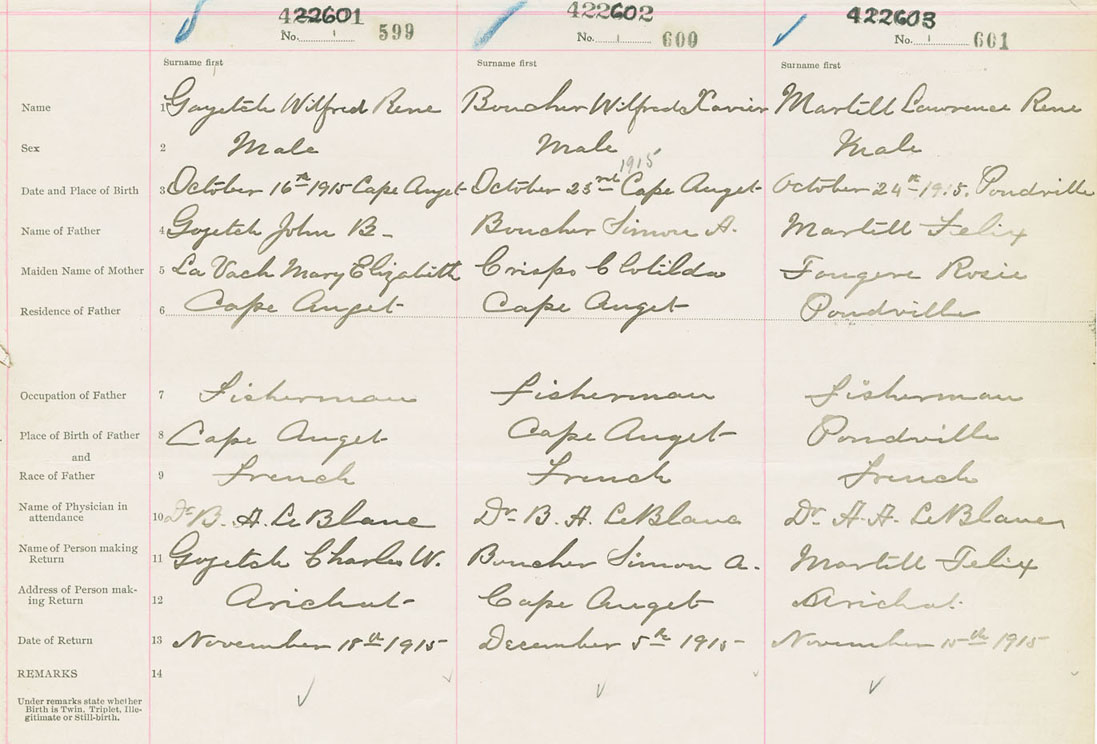 422601 422602 422603
No. 1 599 No. 1 600 No. 1 601
Surname first Surname first Surname first
Name 1 Goyetch Wilfred Rene Boucher Wilfred Xavier Martell Lawrence Rene
Sex 2 Male Male Male
1915
Date and Place of Birth 3 October 16th 1915 Cape Auget October 23rd Cape Auget October 24th 1915. Pondville
Name of Father 4 Goyetch John B- Boucher Simon A. Martell Felix
Maiden Name of Mother 5 La Vach Mary Elizabeth Crispo Clotilda Fougere Rosie
Residence of Father 6 Cape Auget Cape Auget Pondville
Occupation of Father 7 Fisherman Fisherman Fisherman
Place of Birth of Father 8 Cape Auget Cape Auget Pondville
and
Race of Father 9 French French French
Name of Physician in
attendance 10 Dr B. A. LeBlanc Dr B. A. LeBlanc Dr A. A. LeBlanc
Name of Person making
Return 11 Goyetch Charles W. Boucher Simon A. Martell Felix
Address of Person mak-
ing Return 12 Arichat Cape Auget Arichat
Date of Return 13 November 18th 1915 December 5th 1915 November 15th 1915
REMARKS 14
Under remarks state whether
Birth is Twin, Triplet, Ille-
gitimate or Still-birth.